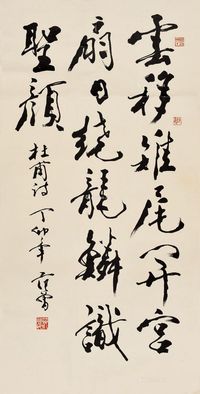 雲移雉尾開宮
扇日繞龍鱗識
聖顏
杜甫詩 丁卯年